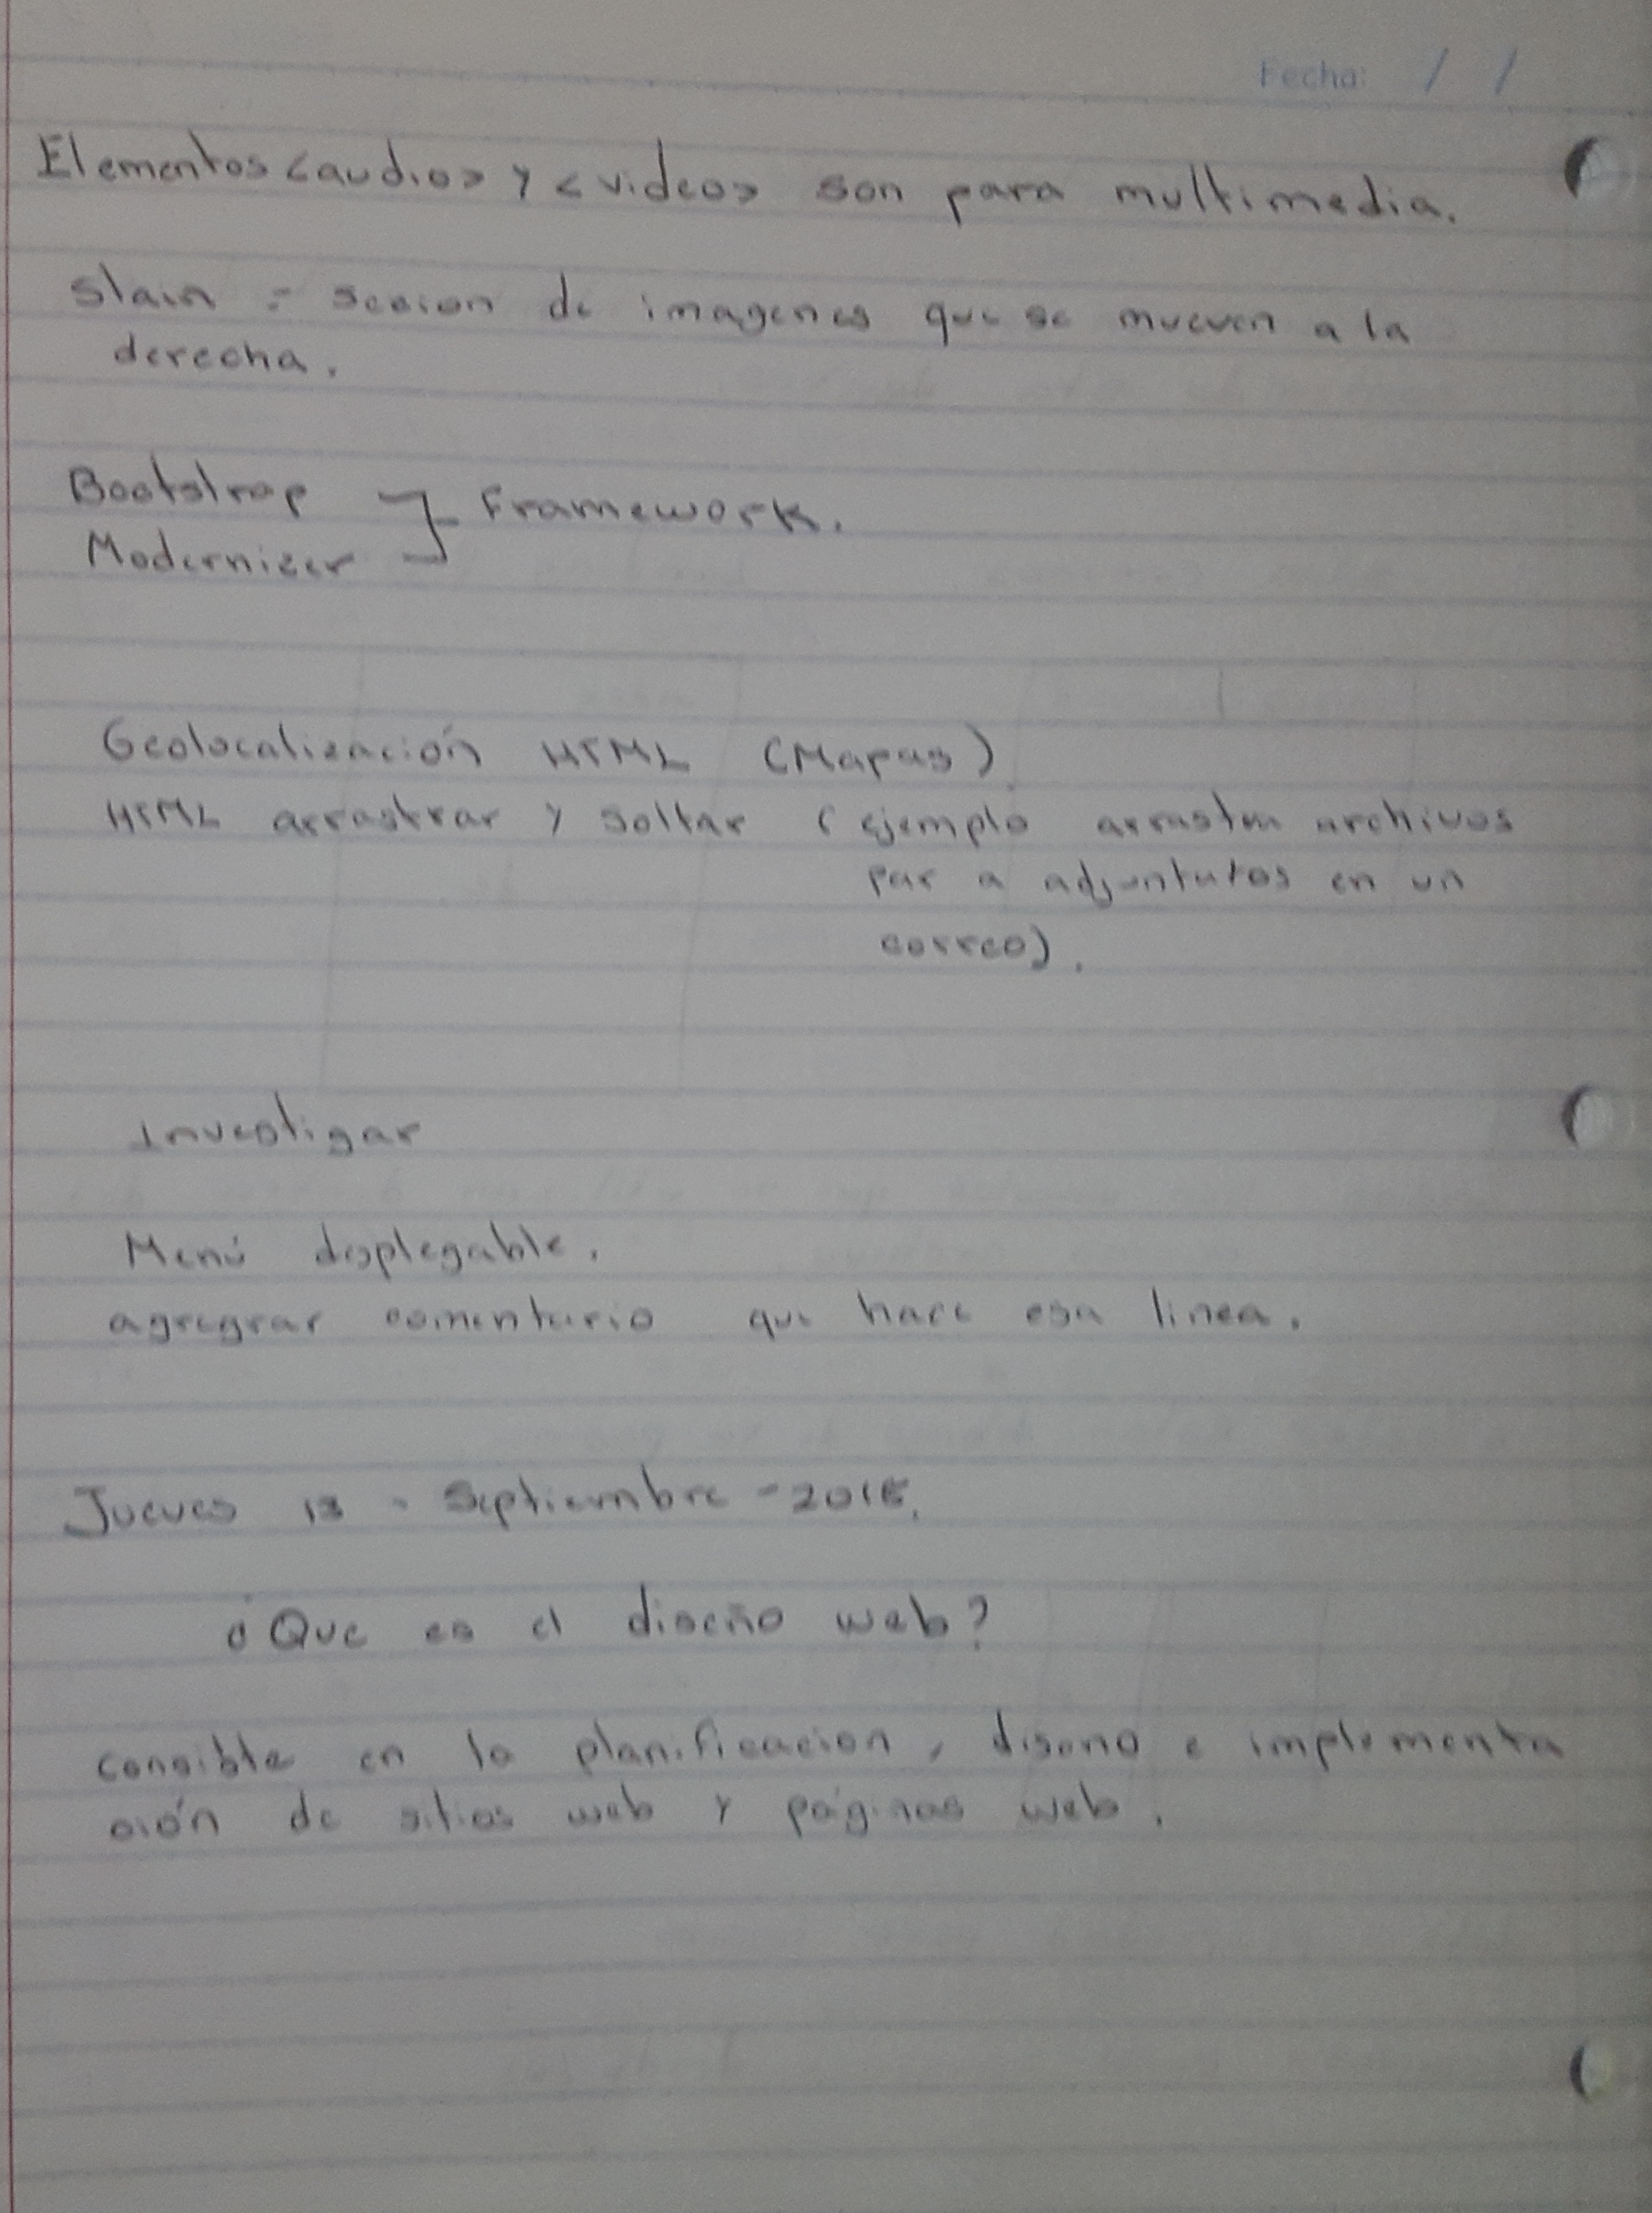 Fecha: / /
Elementos <audio> y <video> son para multimedia.
Slain = secion de imagenes que se mueven a la
derecha.
Bootstrap
Modernizer } Framework.
Geolocalización HTML (Mapas)
HTML arrastrar y soltar (ejemplo arrastra archivos
par a adjuntatos en un
correo).
Investigar
Menú desplegable.
agregrar comentario que hace esa linea.
Jueves 13 - Septiembre - 2018.
¿Que es el diseño web?
consible en la planificacion, diseno e implementa
ción de sitios web y páginas web.